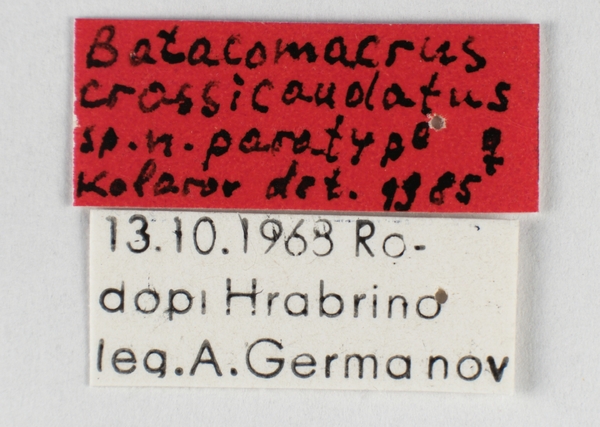 Batacomacrus
crassicaudatus
sp.n. paratype ♀
Kolarov det. 1985
13.10.1968 Ro-
dopi Hrabrino
leg. A. Germanov